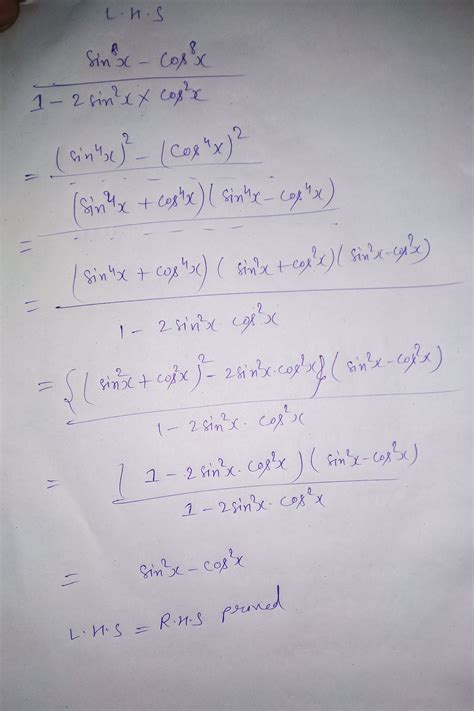 L.H.S
sin⁸x - cos⁸x
1 - 2 sin²x × cos²x
= (sin⁴x)² - (cos⁴x)²
(sin⁴x + cos⁴x)(sin⁴x - cos⁴x)
=
= (sin⁴x + cos⁴x)(sin²x + cos²x)(sin²x - cos²x)
1 - 2 sin²x · cos²x
= {(sin²x + cos²x)² - 2sin²x·cos²x}(sin²x - cos²x)
1 - 2 sin²x · cos²x
= (1 - 2 sin²x · cos²x)(sin²x - cos²x)
1 - 2 sin²x · cos²x
= sin²x - cos²x
L.H.S = R.H.S proved